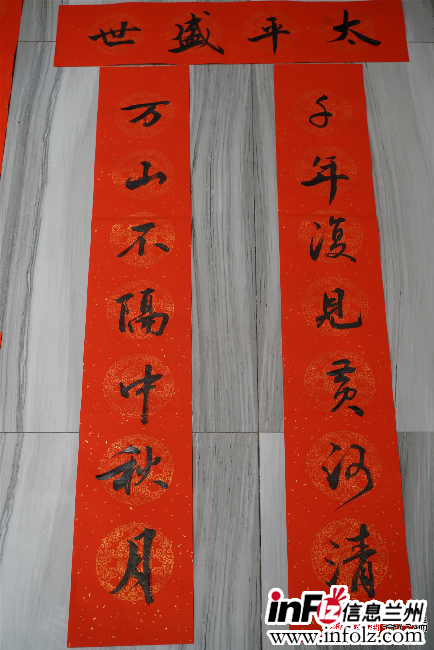 太平盛世
千年復見黄河清
万山不隔中秋月
infLZ 信息兰州
www.infolz.com